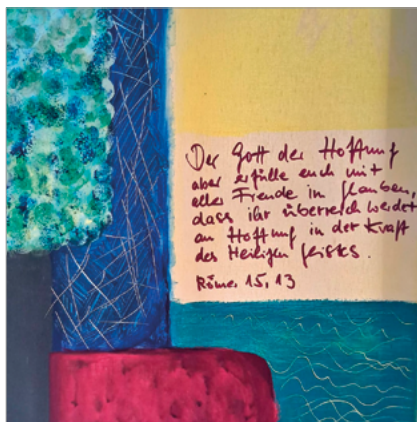 Der Gott der Hoffnung
aber erfülle euch mit
aller Freude in Glauben,
dass ihr überreich werdet
an Hoffnung in der Kraft
des Heiligen Geistes.
Römer 15, 13